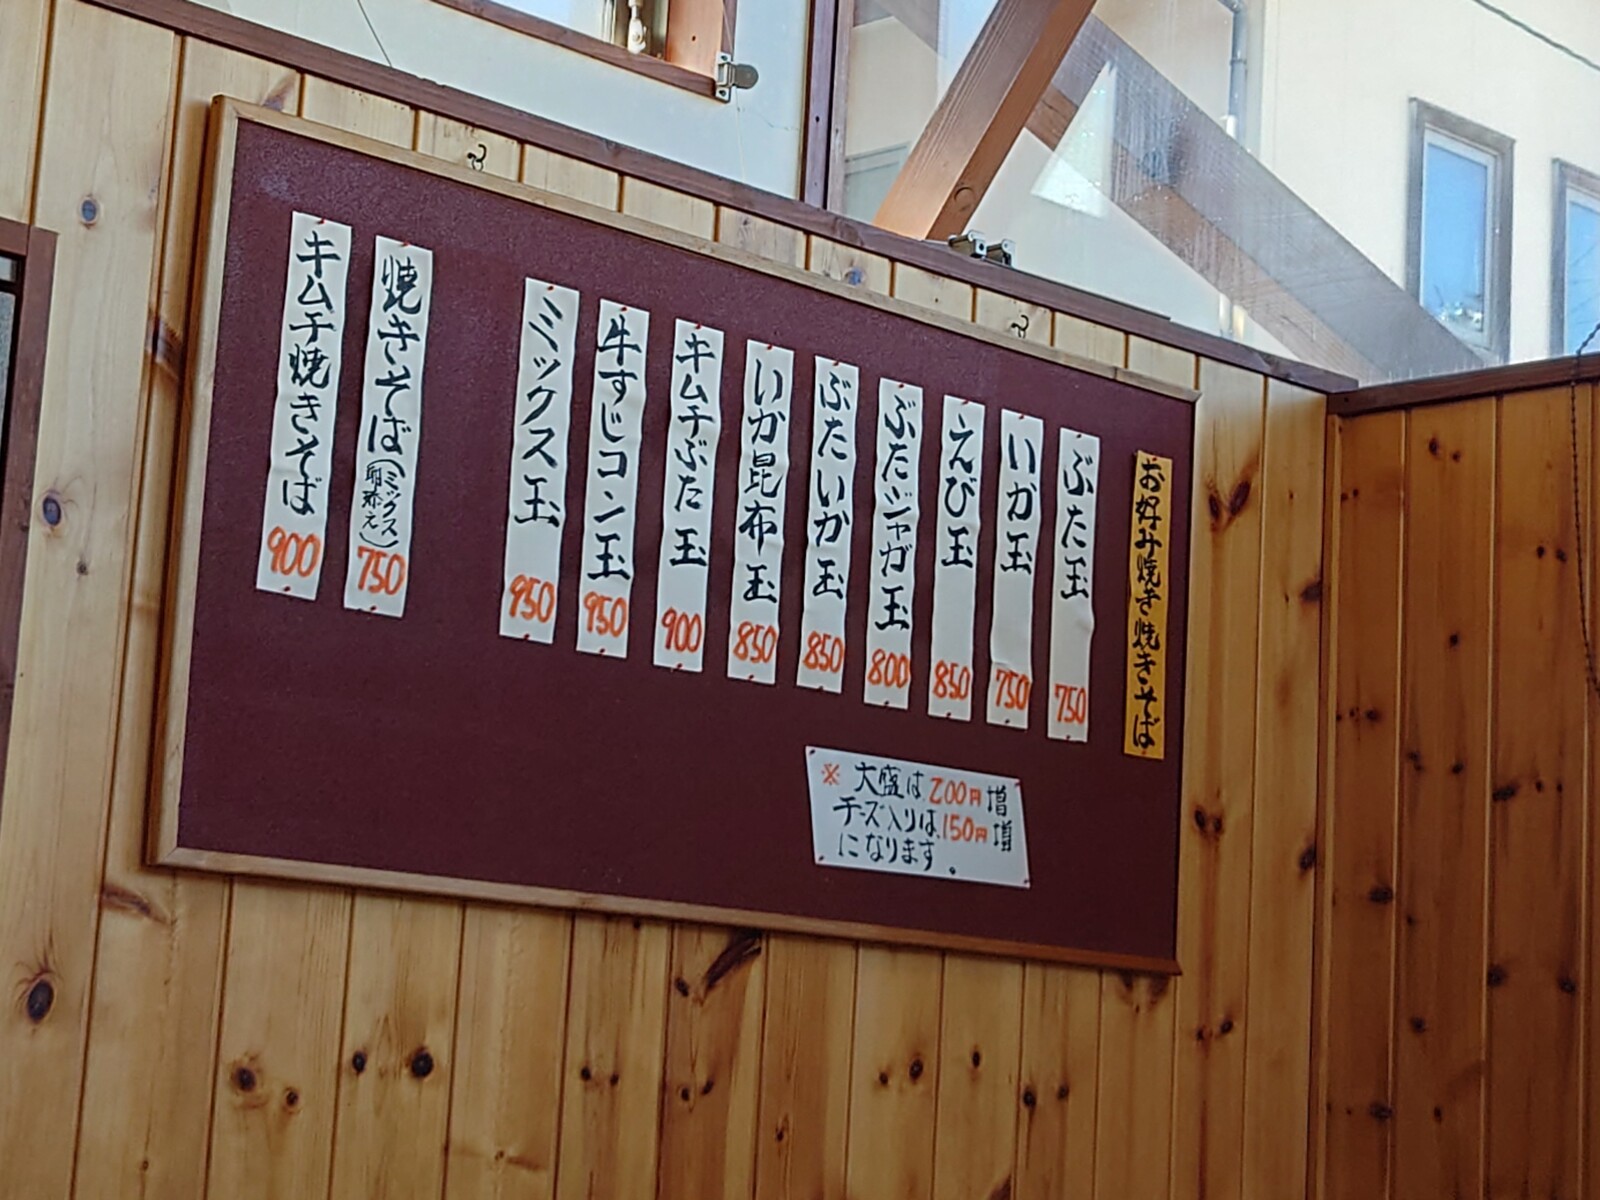 お好み焼き焼きそば
ぶた玉 750
いか玉 750
えび玉 850
ぶたジャガ玉 800
ぶたいか玉 850
いか昆布玉 850
キムチぶた玉 900
牛すじコン玉 950
ミックス玉 950
焼きそば(ミックス) 750
キムチ焼きそば 900
※大盛は200円増
チーズ入りは150円増
になります。